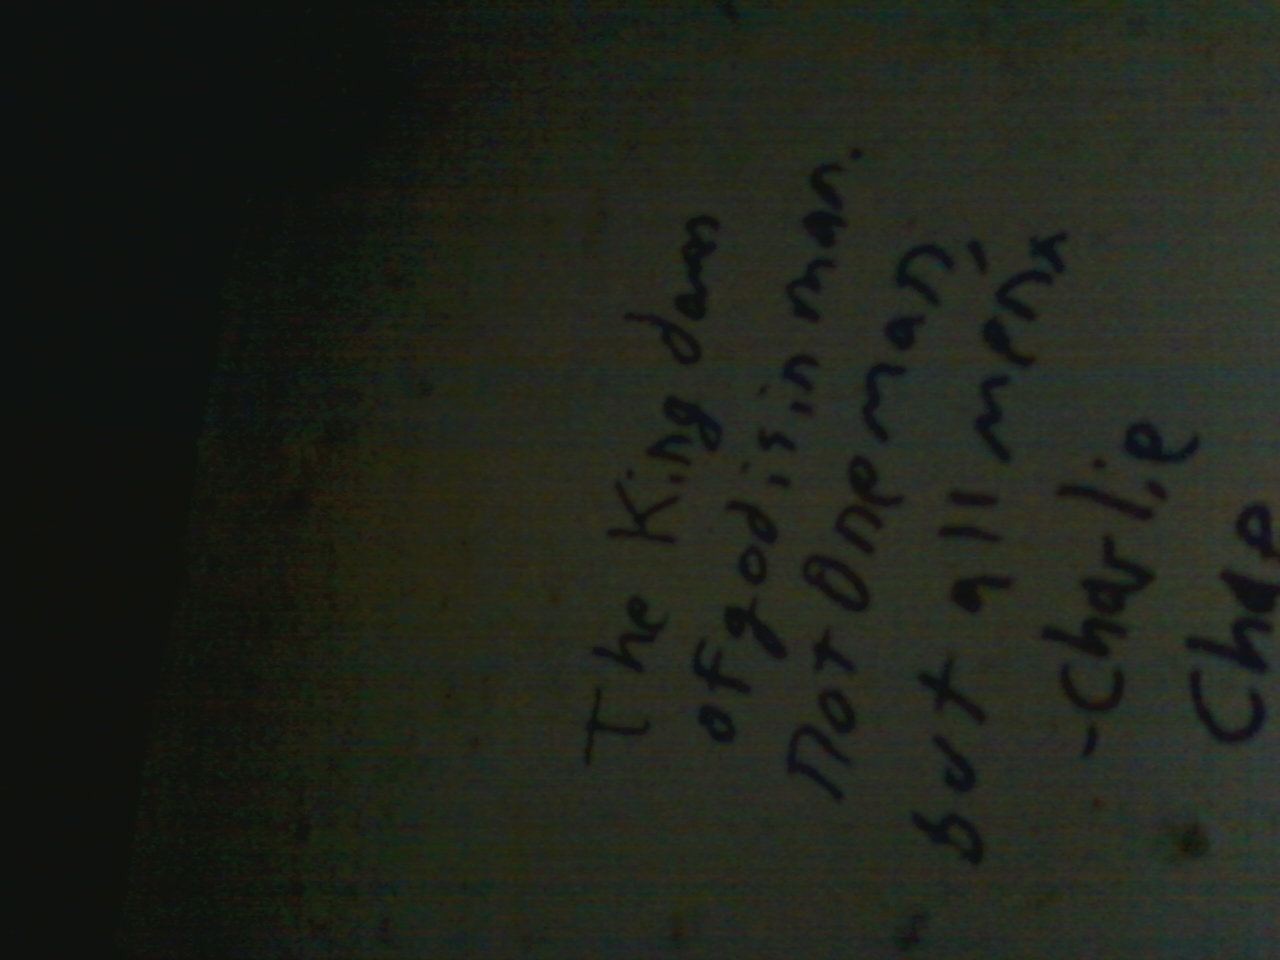 The King dom
of god is in man.
not One man,
but all men
-Charlie
Cha